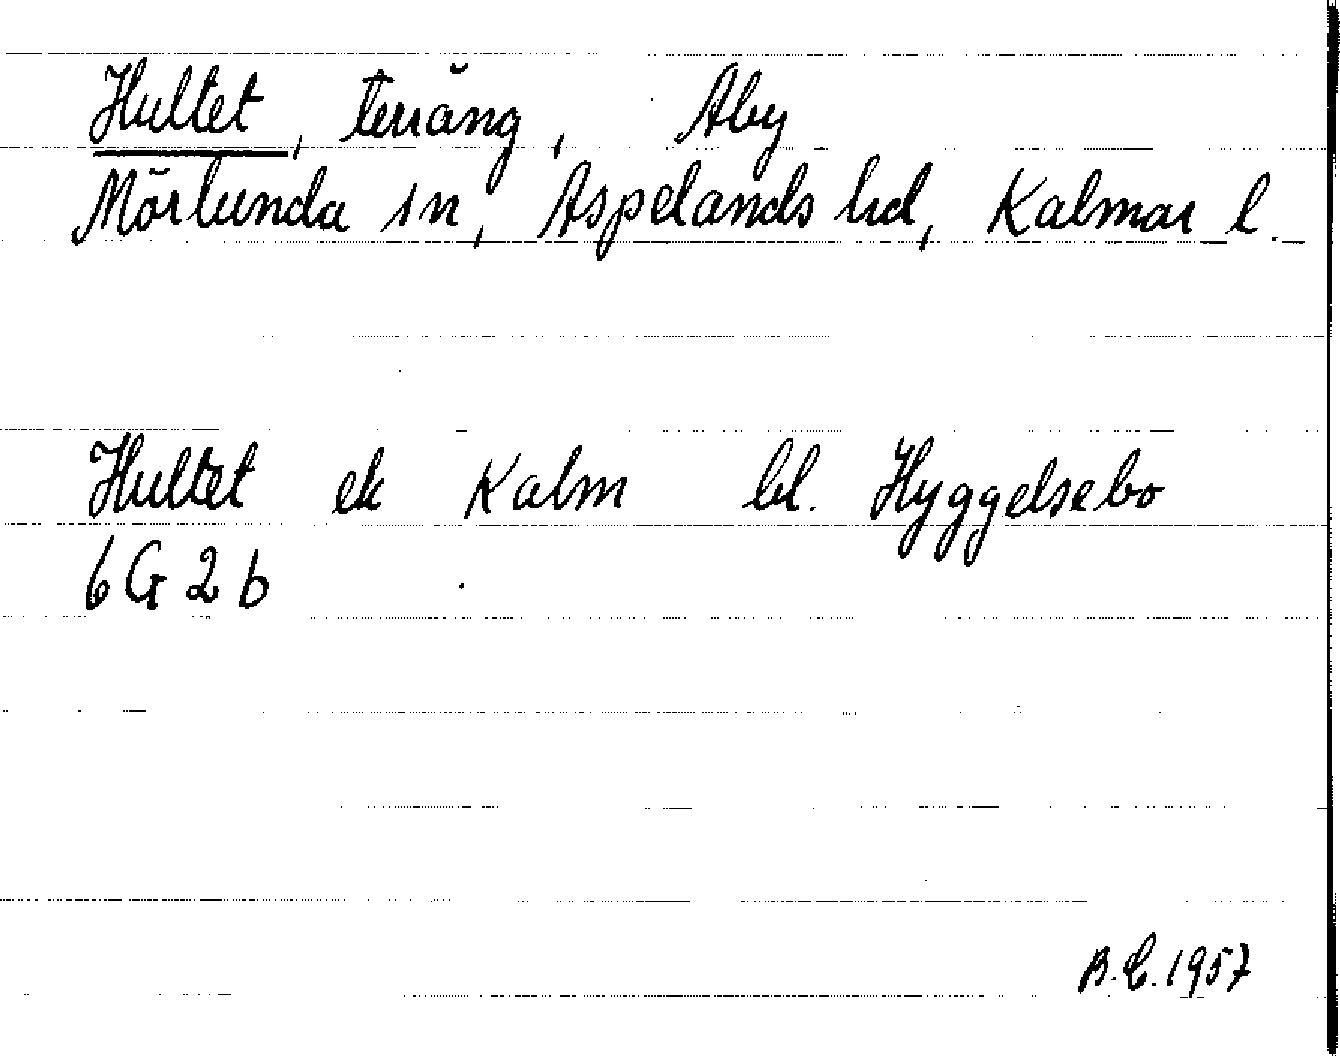 Hultet, terräng, Åby
Mörlunda sn, Aspelands hd, Kalmar l.
Hultet ek Kalm bl. Hyggelsebo
6G 2b
B.E. 1957